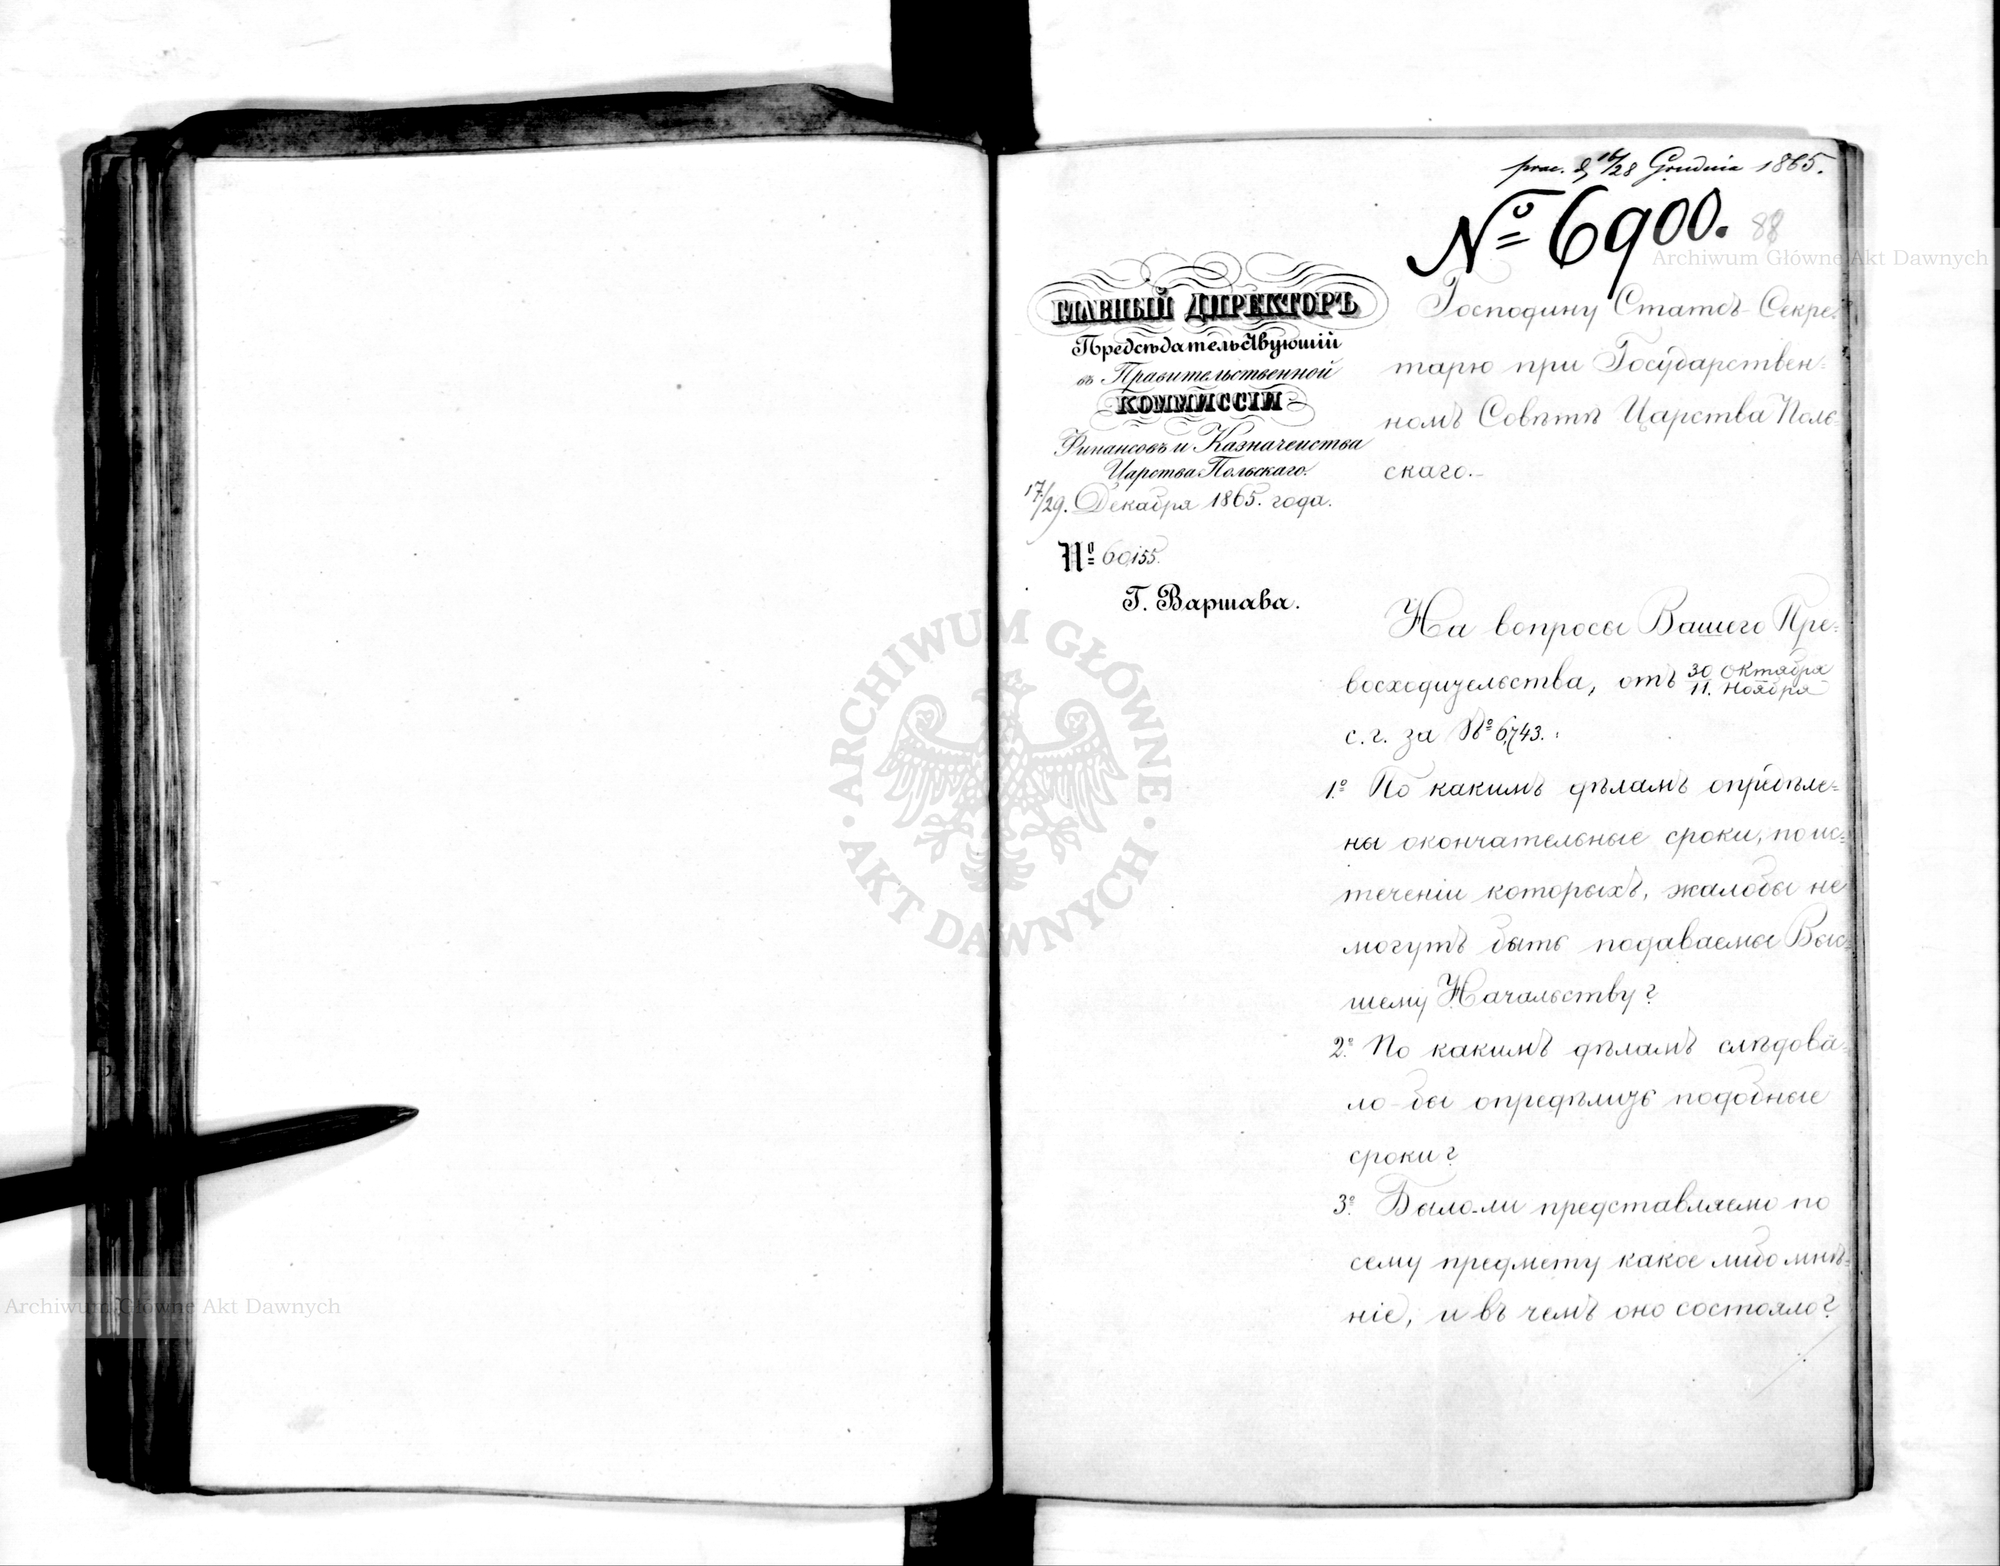 prae. d. 16/28 Grudnia 1865.
№ 6900.
88
Archiwum Główne Akt Dawnych
ГЛАВНЫЙ ДИРЕКТОРЪ
Предсѣдательствующій
въ Правительственной
КОММИССІИ
Финансовъ и Казначейства
Царства Польскаго.
17/29. Декабря 1865. года.
№ 60,155.
Г. Варшава.
Господину Статсъ-Секре-
тарю при Государствен-
номъ Совѣтѣ Царства Поль-
скаго.-
На вопросы Вашего Пре-
восходительства, отъ 30 Октября / 11. Ноября
с. г. за № 6,743.:
1.º По какимъ дѣламъ опредѣле-
ны окончательные сроки, по ис-
теченіи которыхъ, жалобы не
могутъ быть подаваемы Выс-
шему Начальству?
2.º По какимъ дѣламъ слѣдова-
ло-бы опредѣлить подобные
сроки?
3.º Было-ли представляемо по
сему предмету какое либо мнѣ-
ніе, и въ чемъ оно состояло?
ARCHIWUM GŁÓWNE
AKT DAWNYCH
Archiwum Główne Akt Dawnych